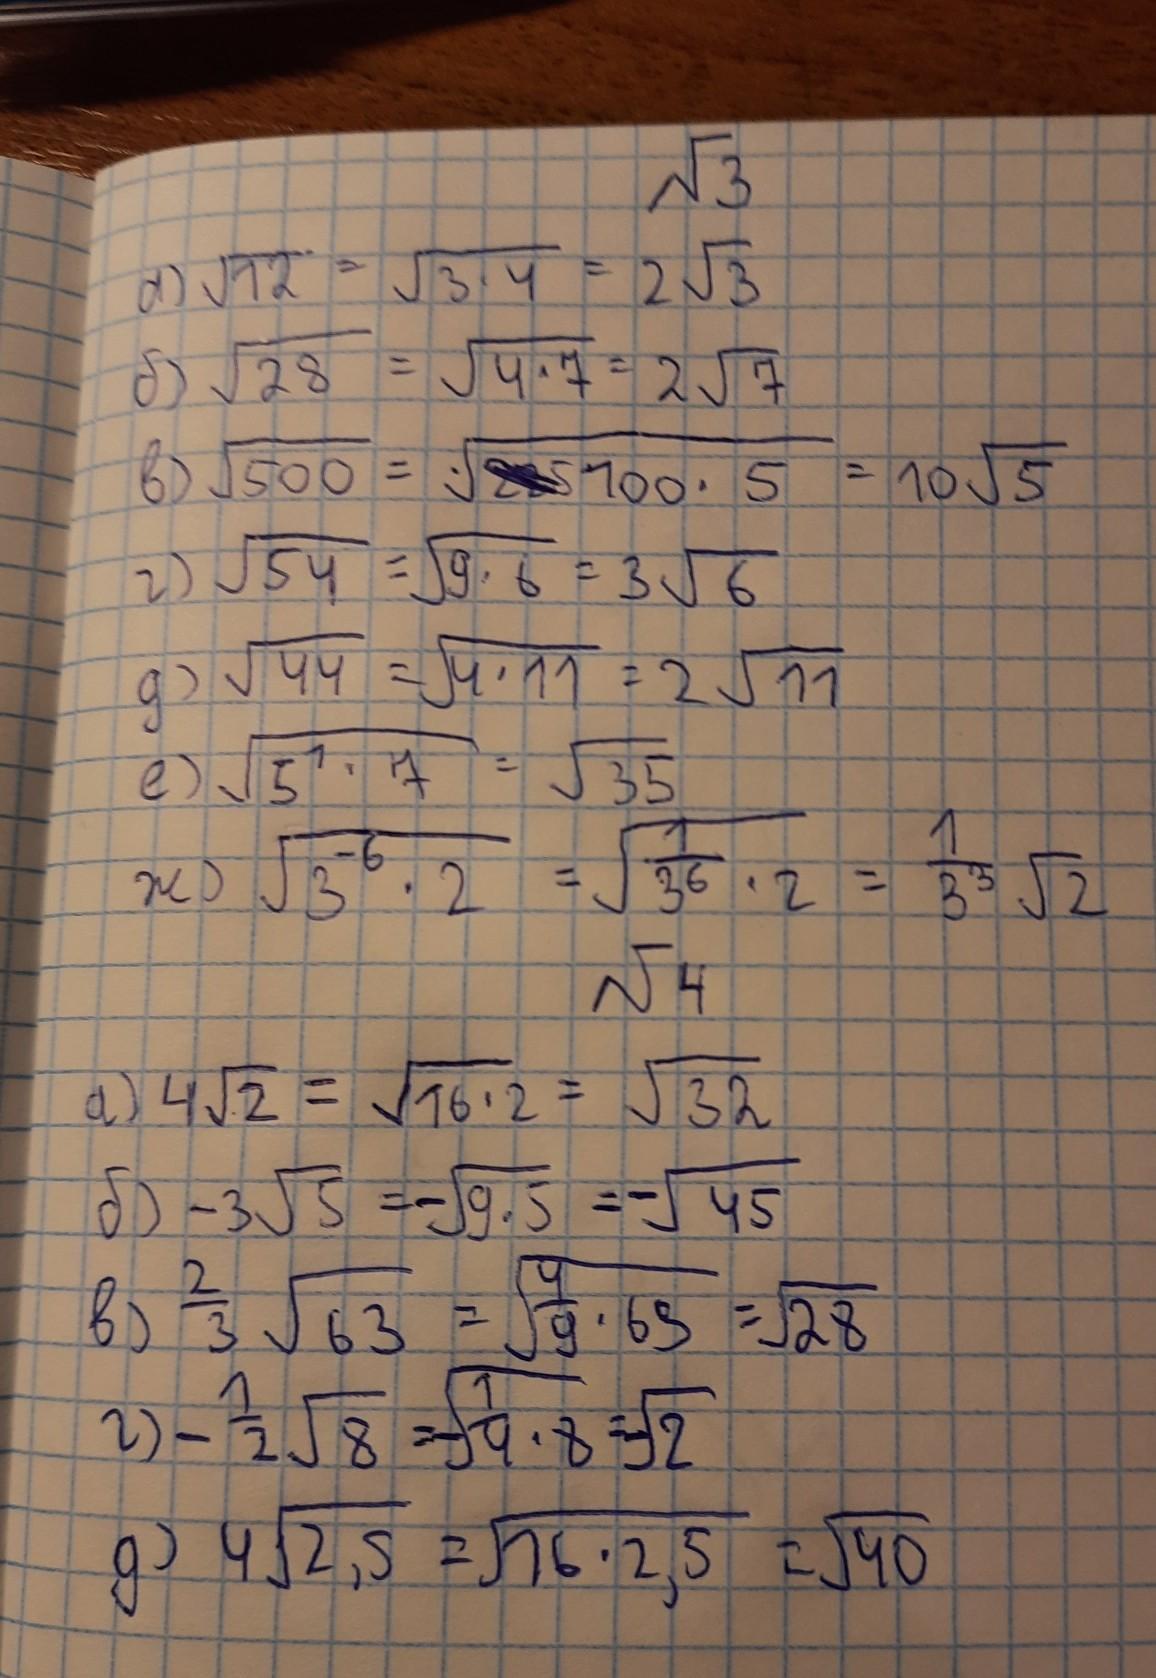 √3
а) √12 = √3·4 = 2√3
б) √28 = √4·7 = 2√7
в) √500 = √100·5 = 10√5
г) √54 = √9·6 = 3√6
д) √44 = √4·11 = 2√11
е) √5¹·7 = √35
ж) √3⁻⁶·2 = √1/3⁶·2 = 1/3³√2
√4
а) 4√2 = √16·2 = √32
б) -3√5 = -√9·5 = -√45
в) 2/3√63 = √4/9·63 = √28
г) -1/2√8 = -√1/4·8 = -√2
д) 4√2,5 = √16·2,5 = √40